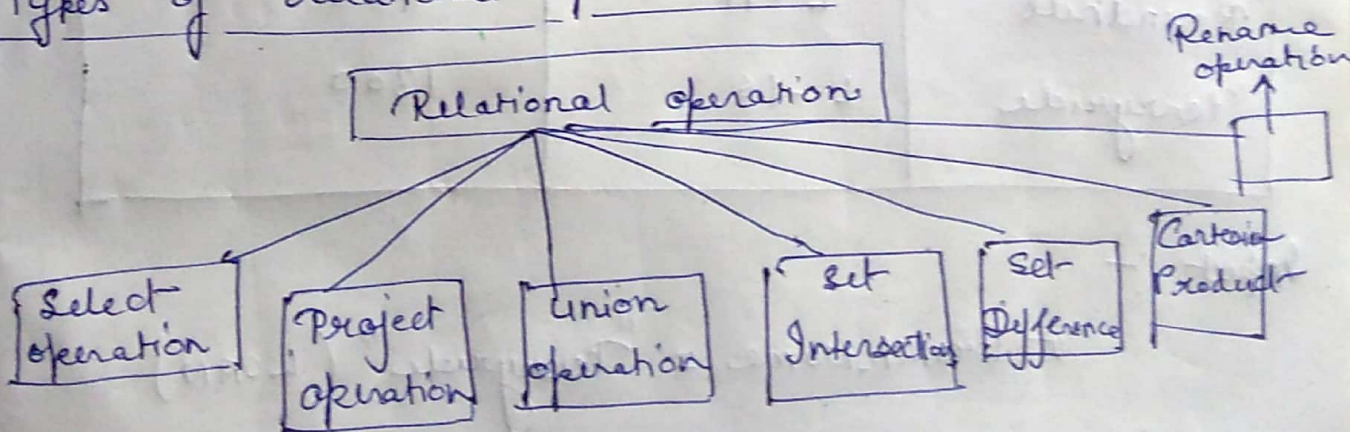 Types of
Rename
operation
Relational operation
Select
operation
Project
operation
Union
operation
Set
Intersection
Set
Difference
Cartesian
Product